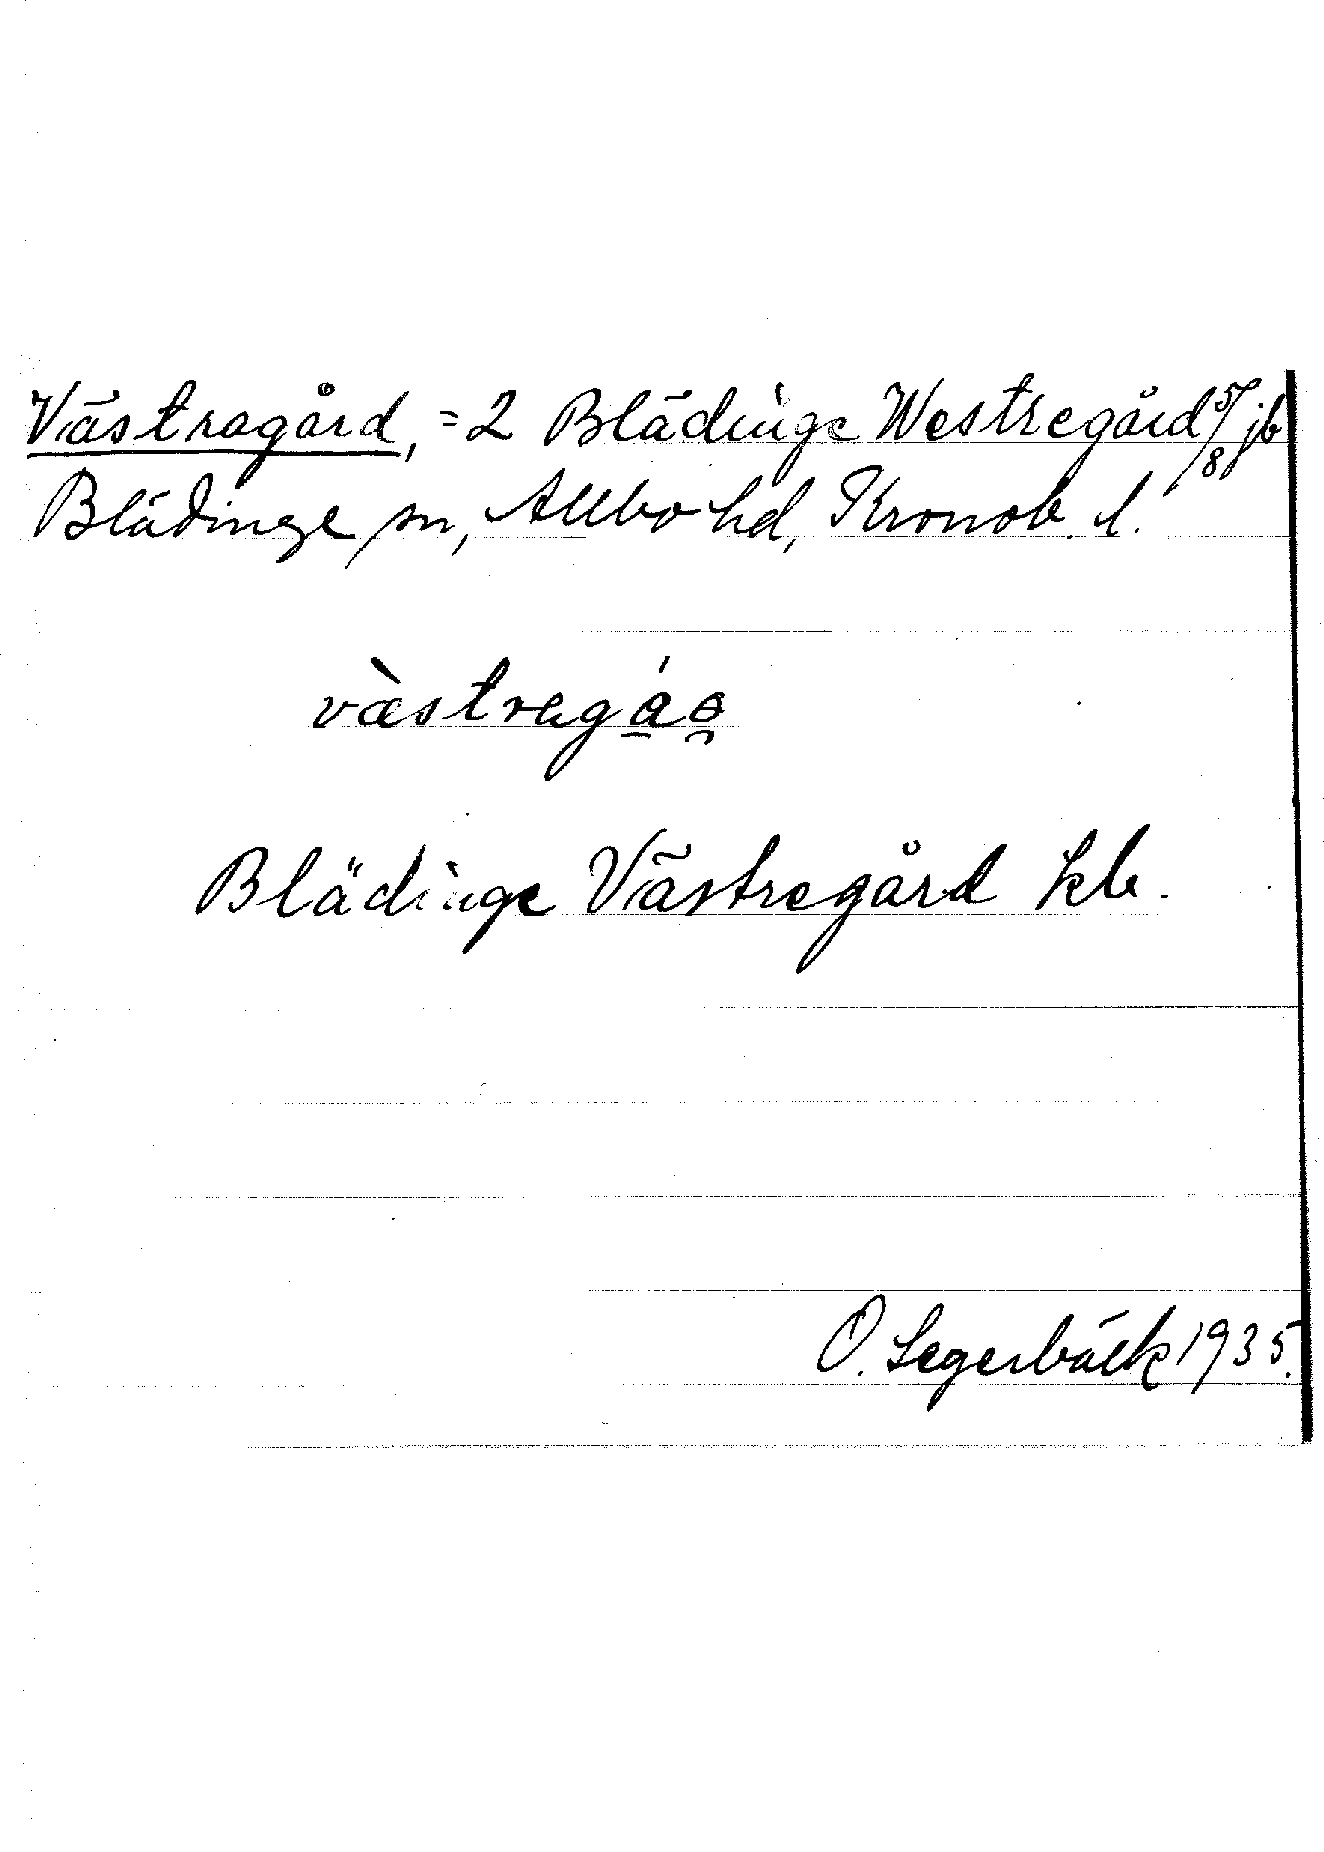 Västragård, = 2 Blädinge Westregård 5/8 jb
Blädinge sn, Allbo hd, Kronob. l.
Blädinge Västregård kb.
O. Segerbäck 1935.